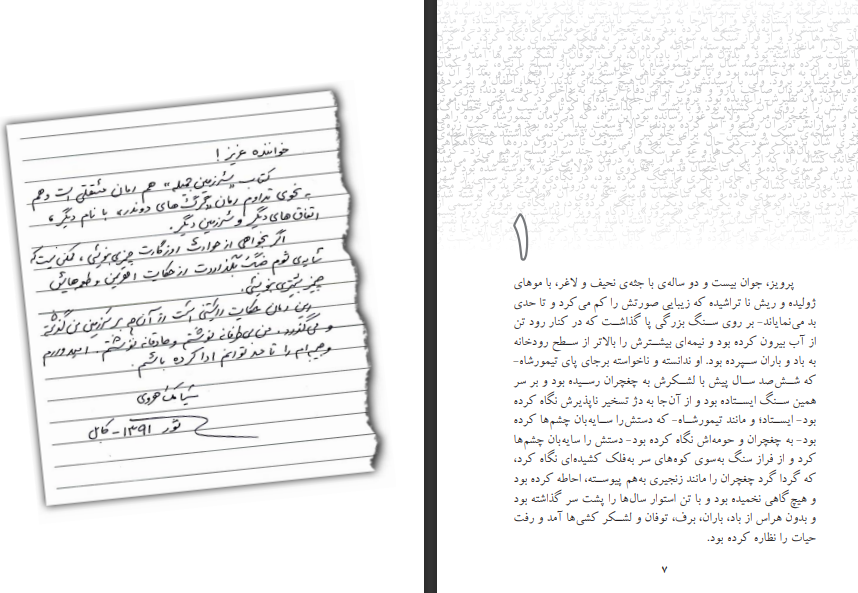 خواننده عزیز !
کتاب "سرزمین جمیله" هم رمان مستقلی است و هم
به نحوی تداوم رمان «گرگ‌های دوندر» با نام دیگر ،
اتفاق‌های دیگر و سرزمین دیگر.
اگر بخواهی از حوادث روزگارت چیزی بنویسی ، ممکن نیست که
سایه‌ی شوم جنگ بگذاردت از حکایت و
چیز بیشتری بنویسی.
این رمان حکایت راستینی است از آن‌چه بر سرزمین من گذشته
و می‌گذرد. من بی‌طرفانه نوشتم و صادقانه نوشتم . امیدوارم
وجیبه‌ام را تا حد توانم ادا کرده باشم.
سیامک هروی
ثور ۱۳۹۱ - کابل
۱
پرویز، جوان بیست و دو ساله‌ی با جثه‌ی نحیف و لاغر، با موهای
ژولیده و ریش نا تراشیده که زیبایی صورتش را کم می‌کرد و تا حدی
بد می‌نمایاند- بر روی سنگ بزرگی پا گذاشت که در کنار رود تن
از آب بیرون کرده بود و نیمه‌ای بیشترش را بالاتر از سطح رودخانه
به باد و باران سپرده بود. او ندانسته و ناخواسته برجای پای تیمورشاه-
که شش‌صد سال پیش با لشکرش به چغچران رسیده بود و بر سر
همین سنگ ایستاده بود و از آن‌جا به دژ تسخیر ناپذیرش نگاه کرده
بود- ایستاد؛ و مانند تیمورشاه- که دستش را سایه‌بان چشم‌ها کرده
بود- به چغچران و حومه‌اش نگاه کرده بود- دستش را سایه‌بان چشم‌ها
کرد و از فراز سنگ به‌سوی کوه‌های سر به‌فلک کشیده‌ای نگاه کرد،
که گردا گرد چغچران را مانند زنجیری به‌هم پیوسته، احاطه کرده بود
و هیچ‌گاهی نخمیده بود و با تن استوار سال‌ها را پشت سر گذاشته بود
و بدون هراس از باد، باران، برف، توفان و لشکر کشی‌ها آمد و رفت
حیات را نظاره کرده بود.
۷